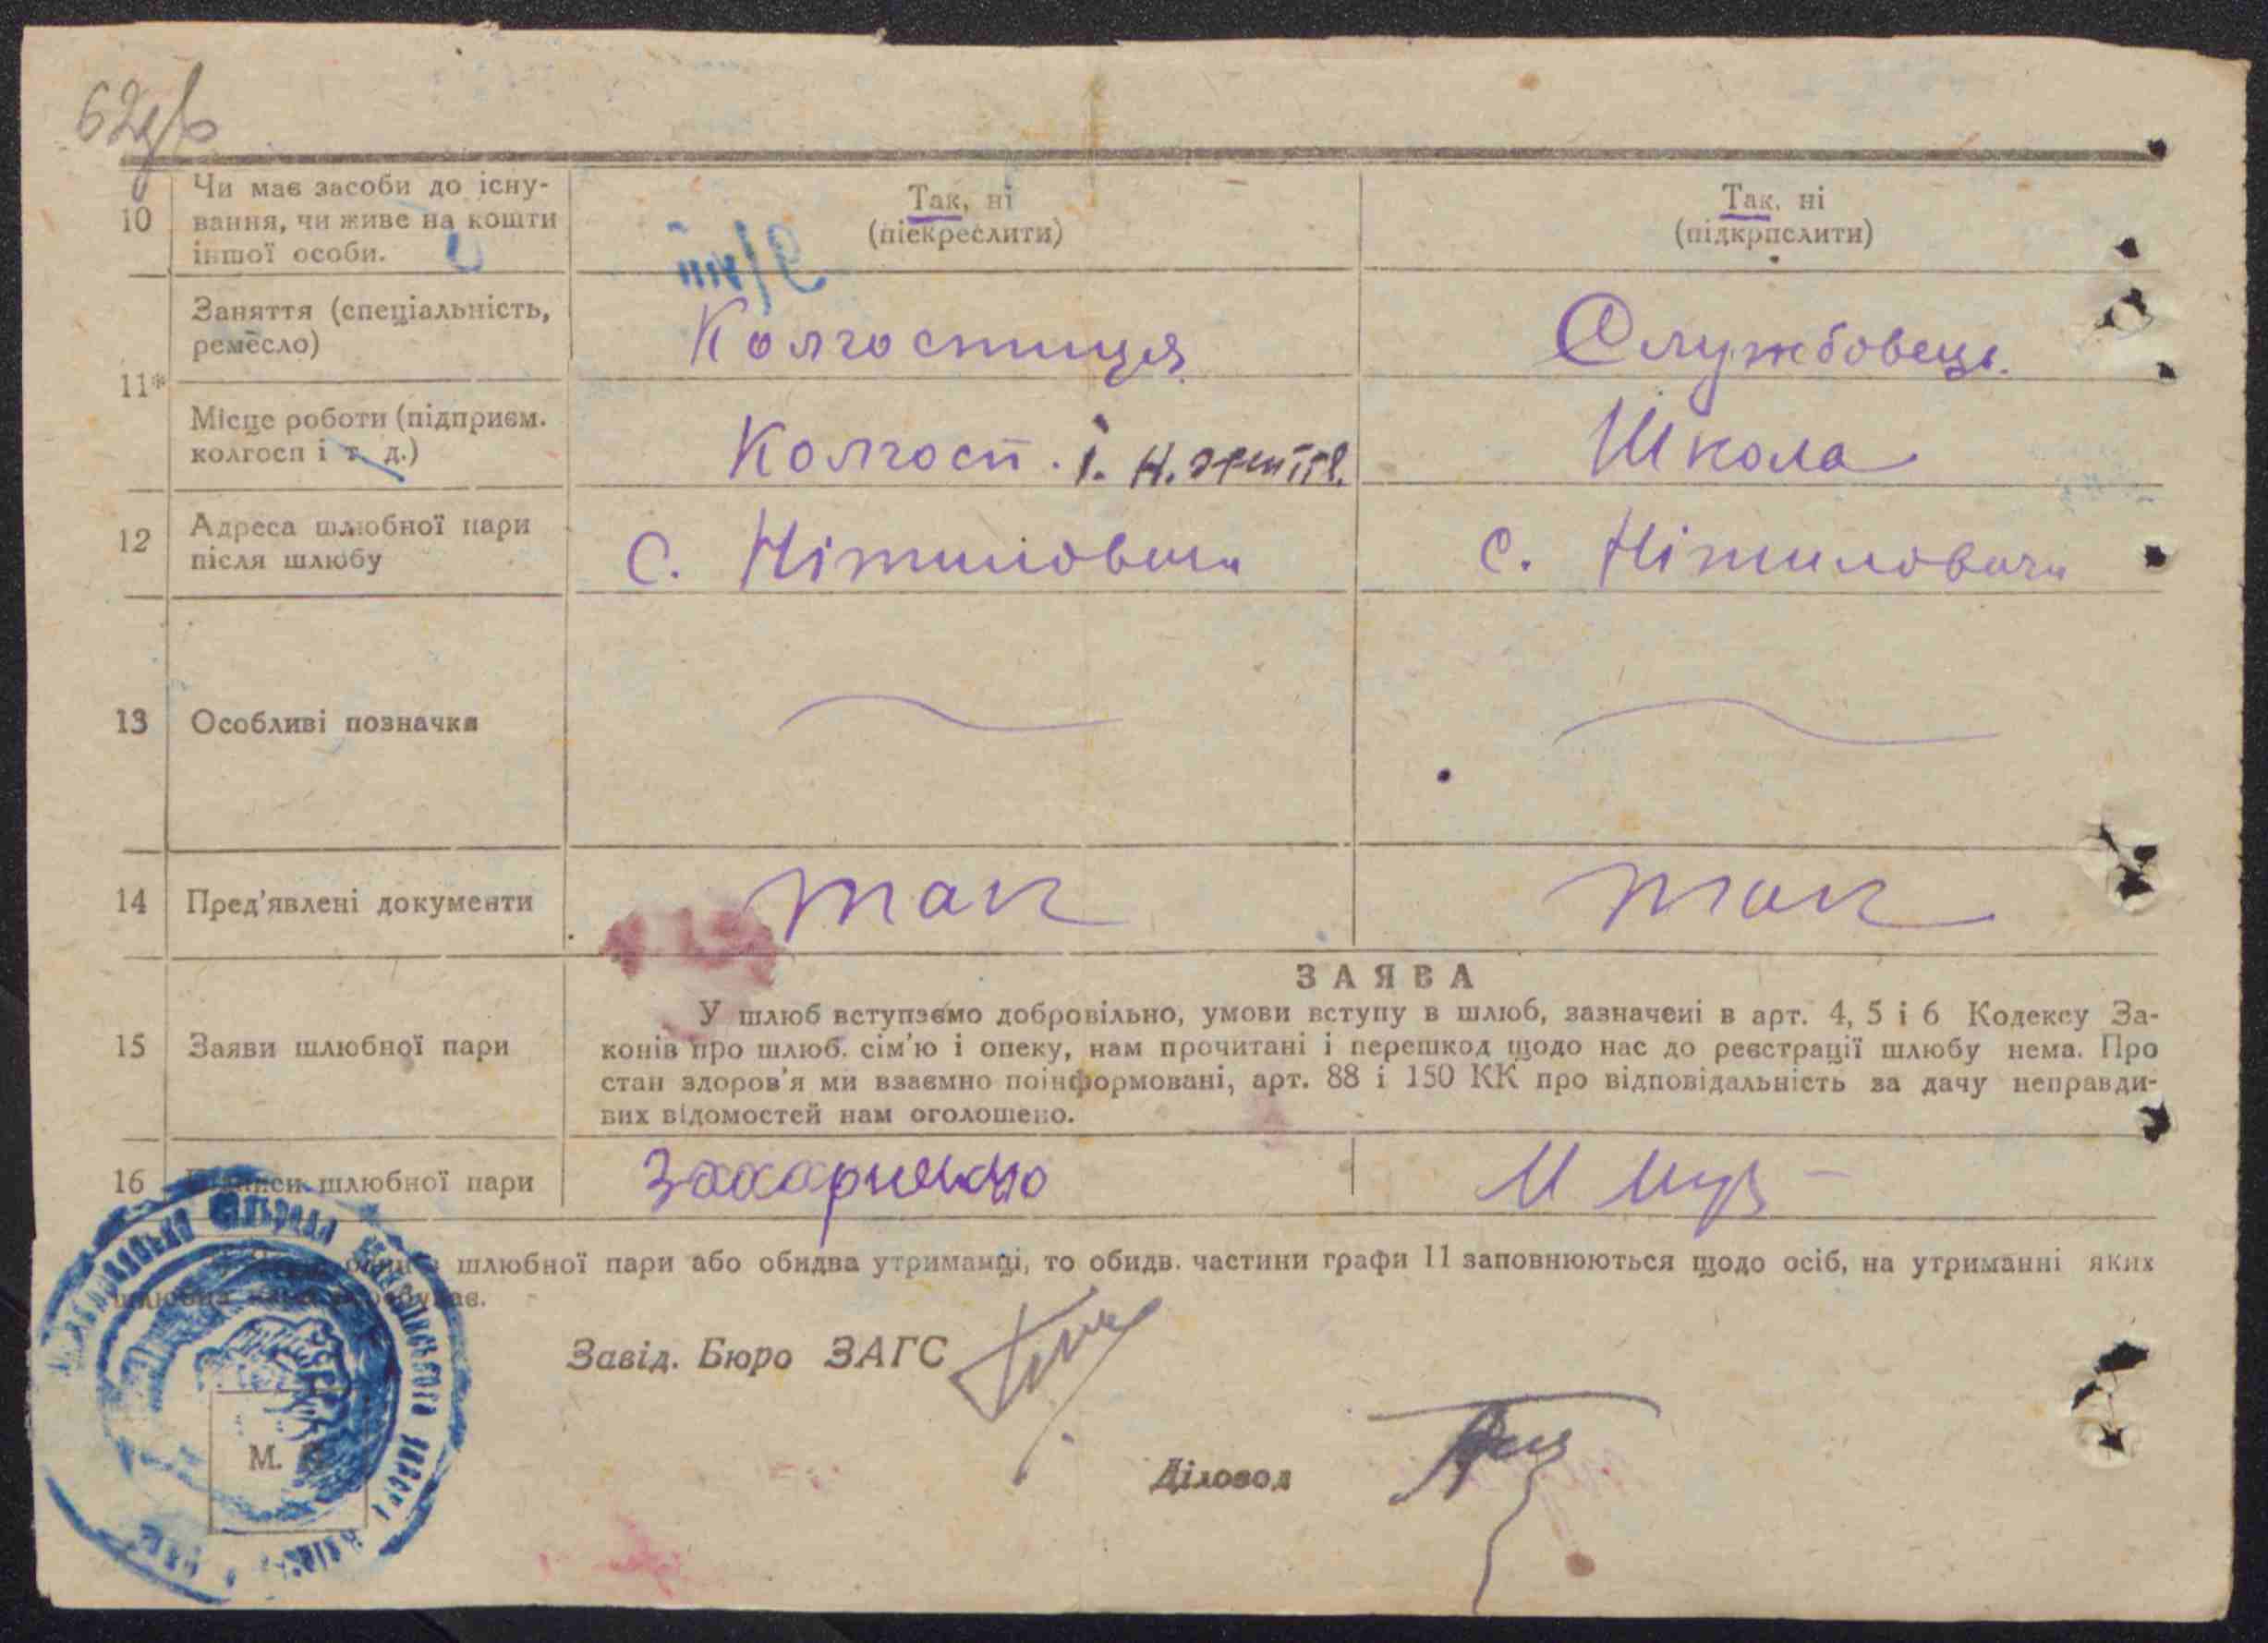 10 Чи має засоби до існу-
вання, чи живе на кошти
іншої особи.
Так, ні
(піекреслити)
Так, ні
(підкрпслити)
11* Заняття (спеціальність,
ремесло)
Колгоспниця
Службовець.
Місце роботи (підприєм.
колгосп і т. д.)
Колгосп. і.
Школа
12 Адреса шлюбної пари
після шлюбу
с. Нітиловичи
с. Нітиловичи
13 Особливі позначки
14 Пред'явлені документи
так
так
15 Заяви шлюбної пари
ЗАЯВА
У шлюб вступаємо добровільно, умови вступу в шлюб, зазначені в арт. 4, 5 і 6 Кодексу За-
конів про шлюб. сім'ю і опеку, нам прочитані і перешкод щодо нас до реєстрації шлюбу нема. Про
стан здоров'я ми взаємно поінформовані, арт. 88 і 150 КК про відповідальність за дачу неправди-
вих відомостей нам оголошено.
16 Підписи шлюбної пари
шлюбної пари або обидва утриманці, то обидв. частини графи 11 заповнюються щодо осіб, на утриманні яких
Завід. Бюро ЗАГС
Діловод
М.